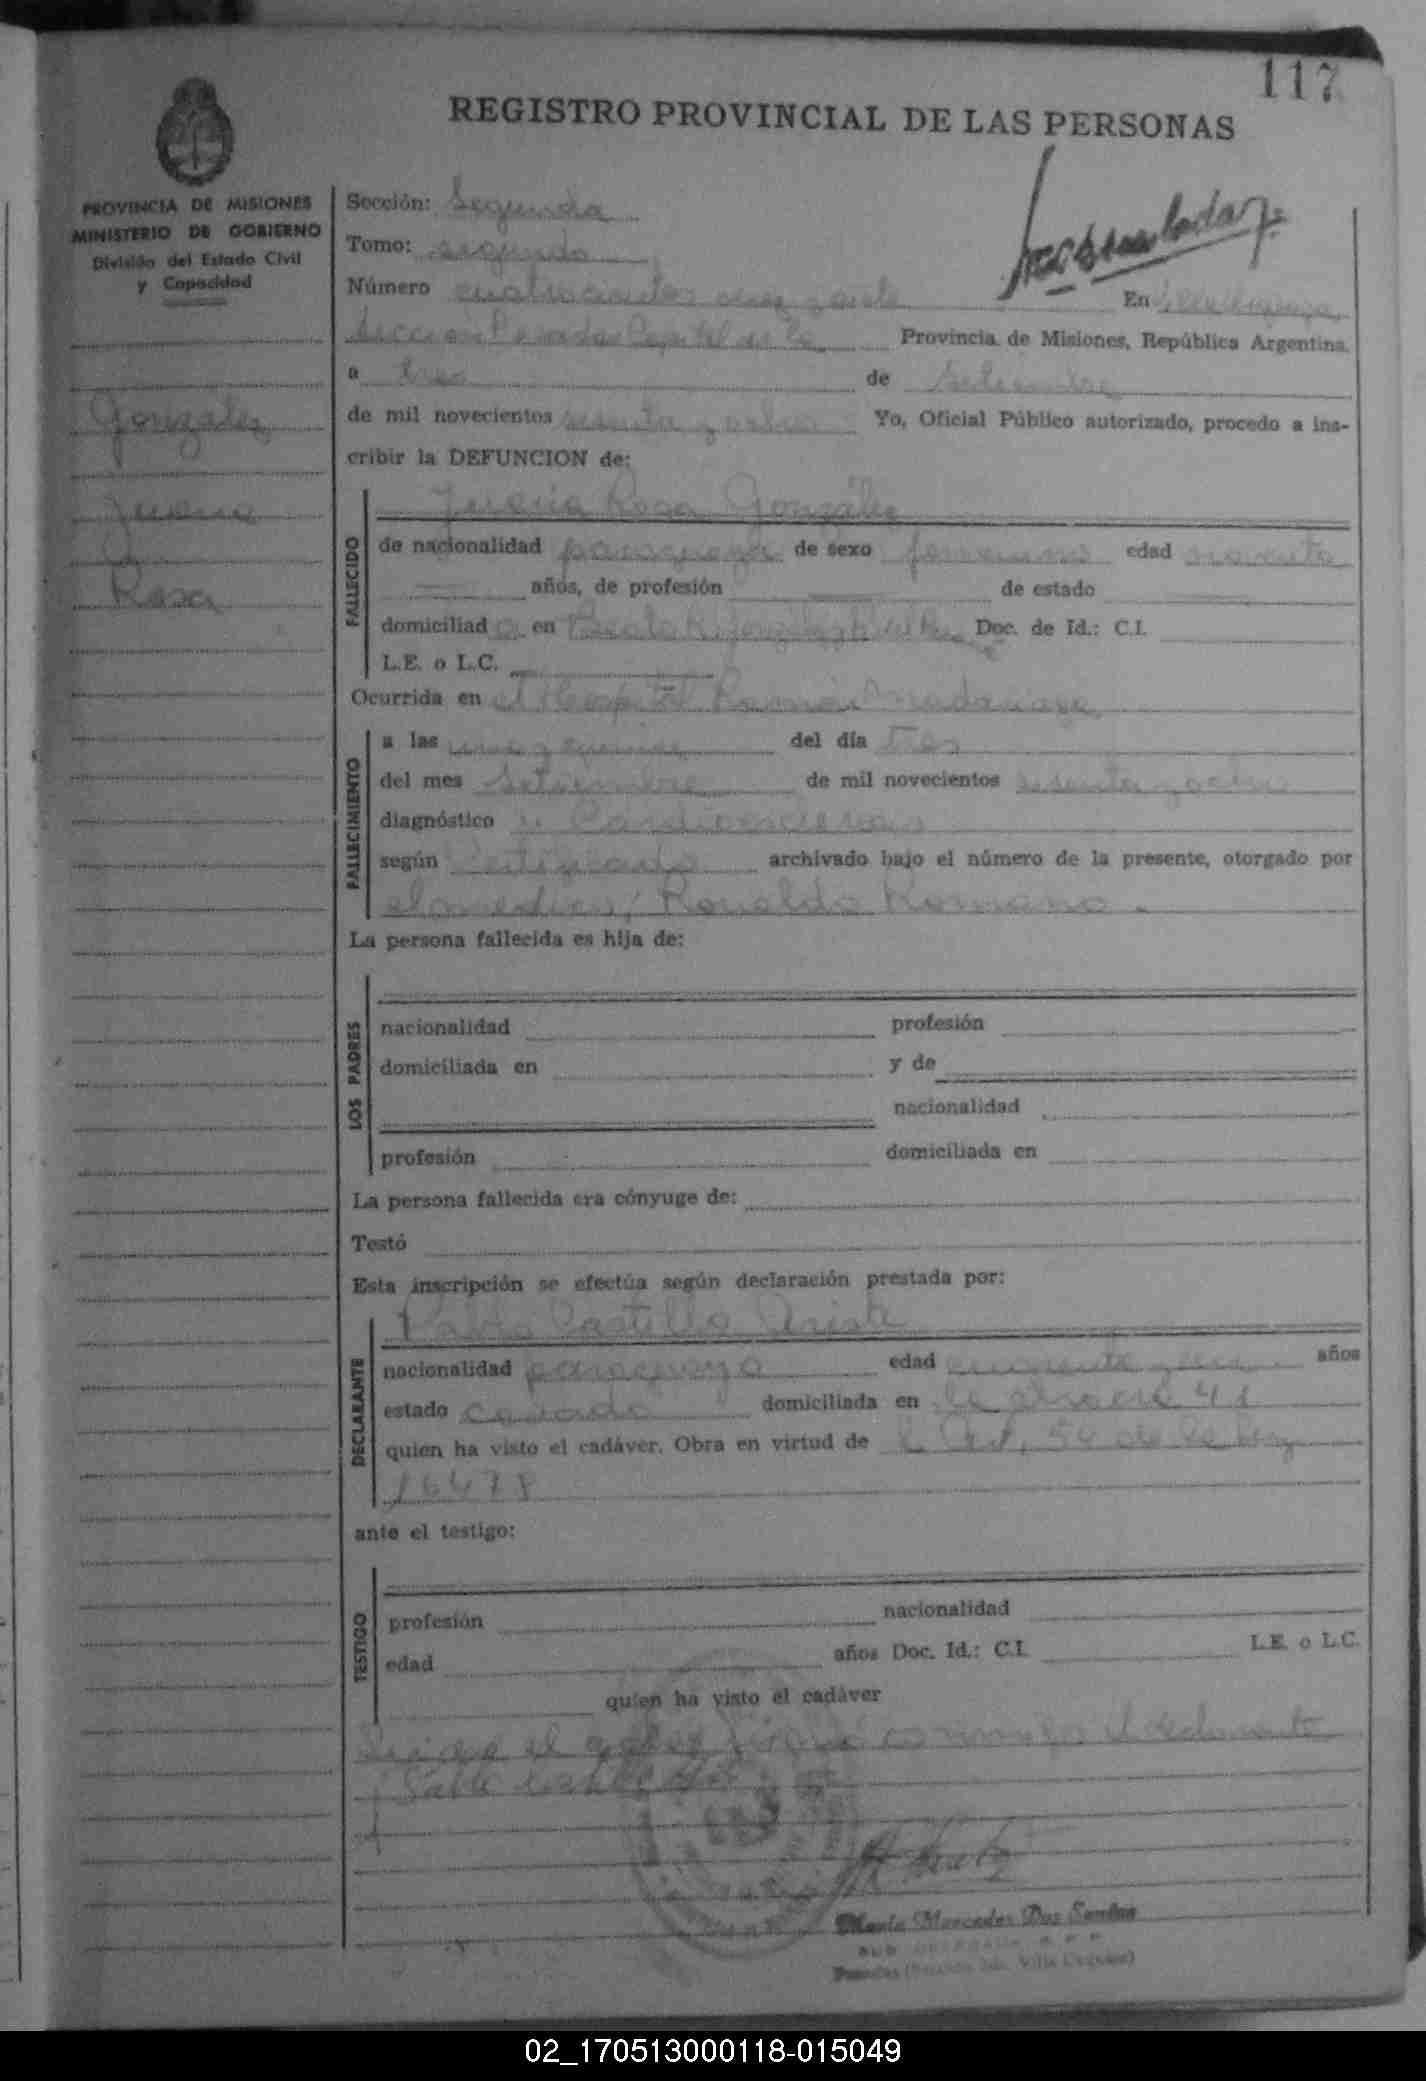 117
REGISTRO PROVINCIAL DE LAS PERSONAS
PROVINCIA DE MISIONES
MINISTERIO DE GOBIERNO
División del Estado Civil
y Capacidad
Gonzalez
Juana
Rosa
Sección: Segunda
Tomo: segundo
Número cuatrocientos diez y siete En Villa Urquiza
Sección Posadas Capital de la Provincia de Misiones, República Argentina,
a tres de Setiembre
de mil novecientos sesenta y ocho Yo, Oficial Público autorizado, procedo a ins-
cribir la DEFUNCION de:
FALLECIDO
Juana Rosa González
de nacionalidad paraguaya de sexo femenino edad noventa
años, de profesión de estado
domiciliada en Doc. de Id.: C.I.
L.E. o L.C.
Ocurrida en el Hospital Ramón Madariaga
FALLECIMIENTO
a las una y quince del día tres
del mes Setiembre de mil novecientos sesenta y ocho
diagnóstico Cardioesclerosis
según Certificado archivado bajo el número de la presente, otorgado por
el medico, Ronaldo Romano.
La persona fallecida es hija de:
LOS PADRES
nacionalidad profesión
domiciliada en y de
nacionalidad
profesión domiciliada en
La persona fallecida era cónyuge de:
Testó
Esta inscripción se efectúa según declaración prestada por:
DECLARANTE
Pablo Castillo
nacionalidad paraguaya edad años
estado casado domiciliada en 41
quien ha visto el cadáver. Obra en virtud de l Art. 50 de la ley
16478
ante el testigo:
TESTIGO
profesión nacionalidad
edad años Doc. Id.: C.I. L.E. o L.C.
quien ha visto el cadáver
el declarante
María Mercedes Dos Santos
02_170513000118-015049